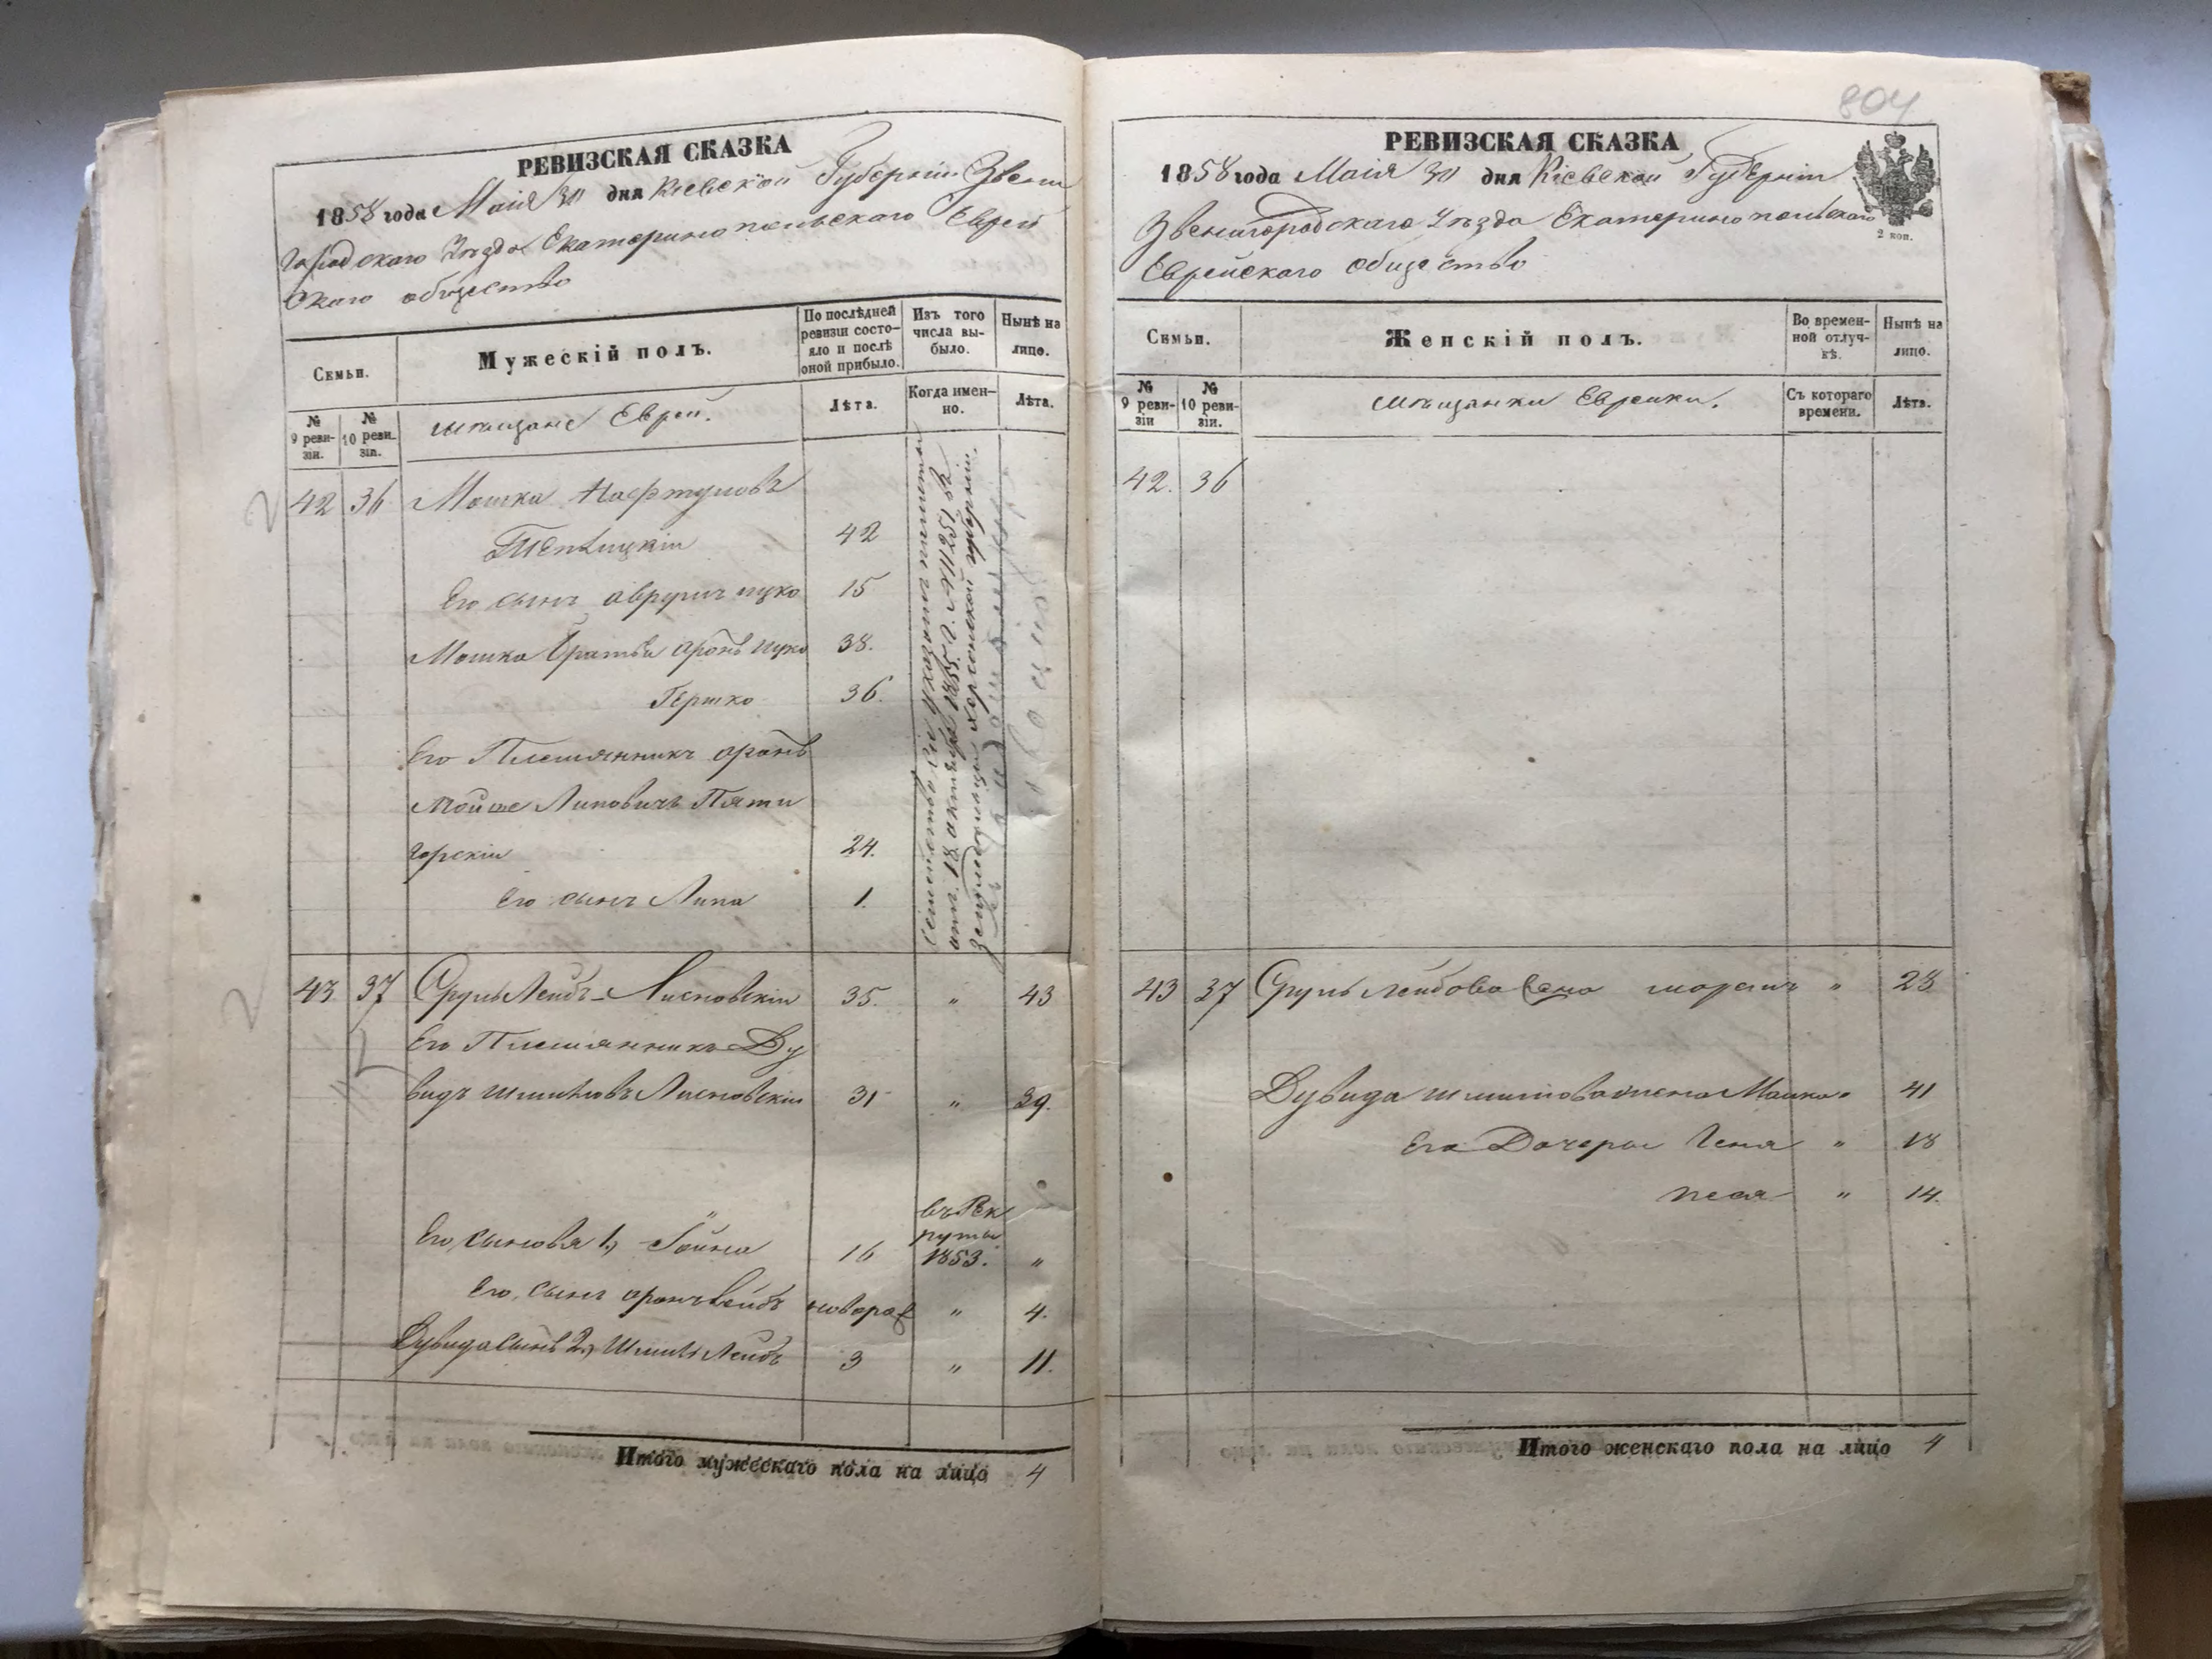 РЕВИЗСКАЯ СКАЗКА
1858 года Маія 30 дня Кіевской Губерніи Звени
городскаго Уѣзда Екатеринопольскаго Еврей
скаго общества
Семьи.
Мужескій полъ.
По послѣдней ревизіи состо-
яло и послѣ
оной прибыло.
Изъ того
числа вы-
было.
Нынѣ на
лицо.
№
9 реви-
зіи.
№
10 реви-
зіи.
мѣщане Евреи.
Лѣта.
Когда имен-
но.
Лѣта.
42 36 Мошка Нафтуловъ
Теплицкій 42
Его сынъ Аврумъ ицко 15
Мошка братья аронъ ицко 38.
Гершко 36.
Его Племянникъ аронъ
Мойше Липовичъ Пяти
горскій 24.
Его сынъ Липа 1.
Семейство сіе указомъ палаты
отъ 18. октября 1855. г. №11251 въ
Земледельцы херсонской губерніи.
43 37 Сруль Лейбъ Лисновскій 35. " 43
Его Племянникъ Ду
видъ Шмилѣовъ Лисновскій 31 " 39.
Его сыновья 1, Гойна 16 въ Рек
руты
1853. "
Его сынъ аронъ Лейбъ новорож " 4.
Дувида сынъ 2, Шмиль Лейбъ 3 " 11.
Итого мужескаго пола на лицо 4
804
РЕВИЗСКАЯ СКАЗКА
1858 года Маія 30 дня Кіевской Губерніи
Звенигородскаго Уѣзда Екатеринопольскаго
Еврейскаго общества
2 коп.
Семьи.
Женскій полъ.
Во времен-
ной отлуч-
кѣ.
Нынѣ на
лицо.
№
9 реви-
зіи
№
10 реви-
зіи.
мѣщанки Еврейки.
Съ котораго
времени.
Лѣта.
42. 36
43 37 Сруль Лейбова жена " 23
Дувида Шмилева жена Малка " 41
Его Дочеры Геня " 18
песя " 14.
Итого женскаго пола на лицо 4